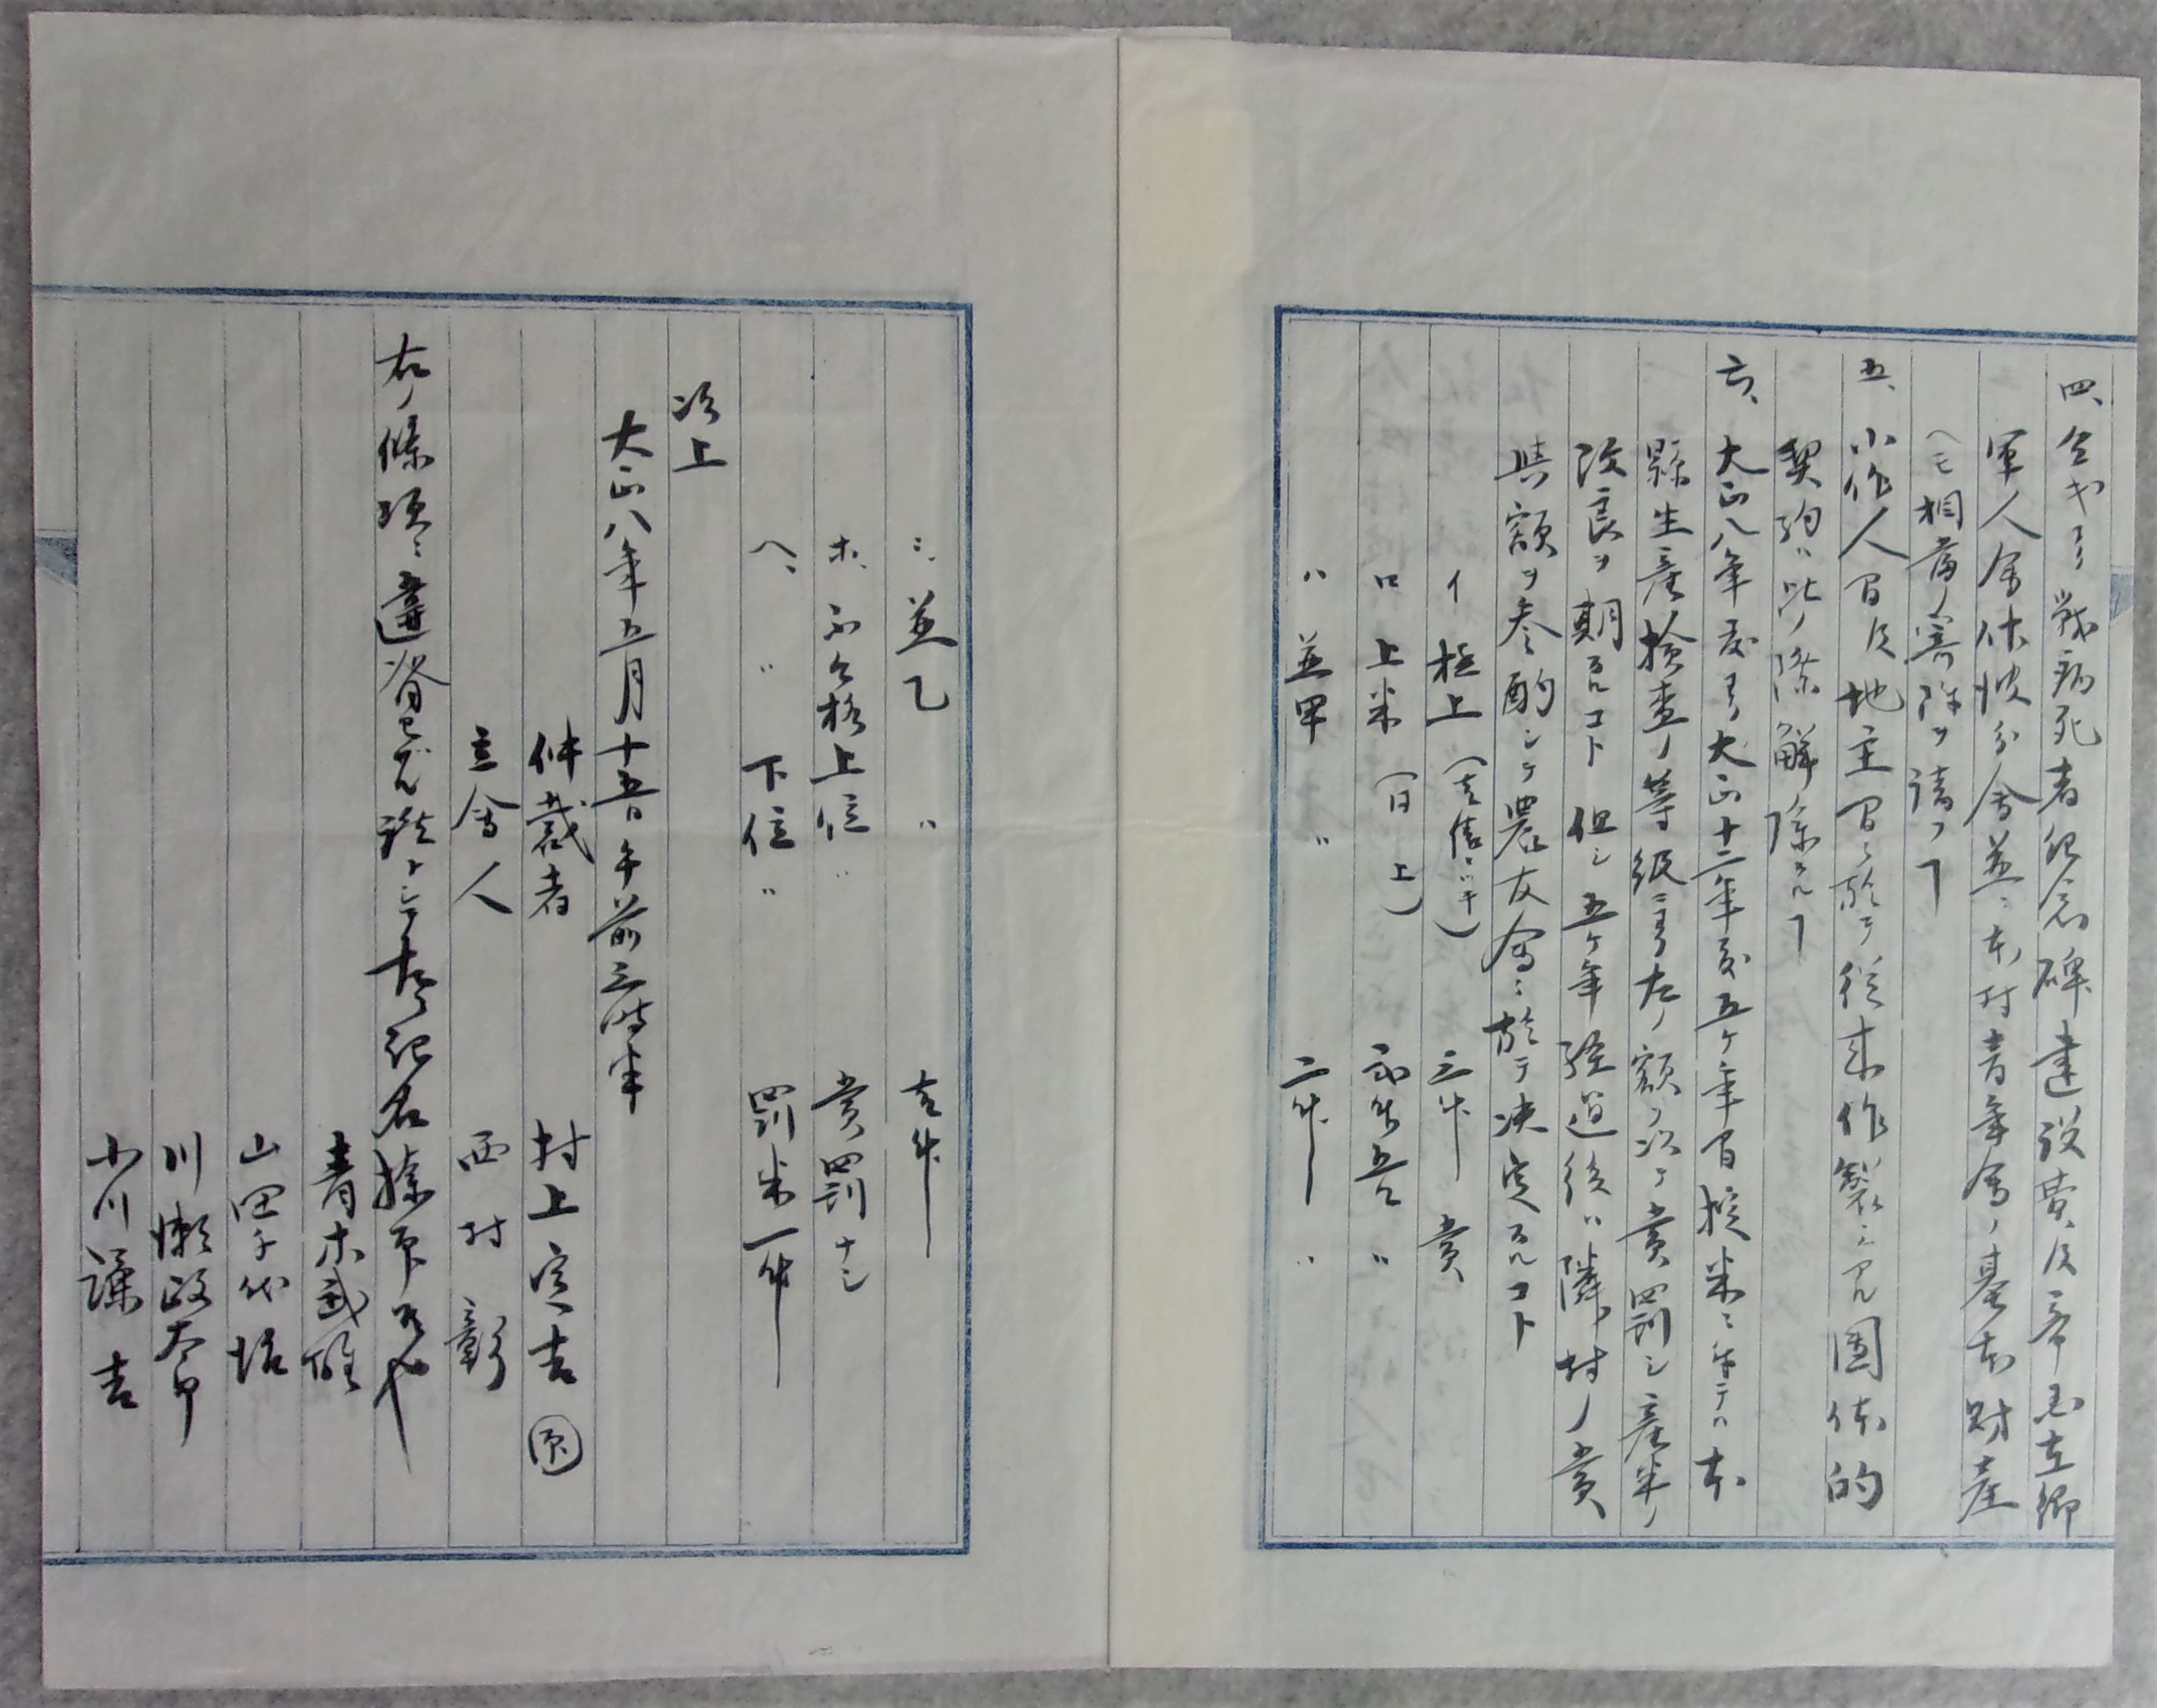 四、今ヤヨリ戦病死者紀念碑建設費及帝國在郷
軍人會休坡分會並ニ本村青年會ノ基本財産
ヘモ相當ノ寄附ヲ請フヿ
五、小作人間及地主間ニ於テ従来作製シアル團体的
契約ハ此ノ際解除スルヿ
六、大正八年度ヨリ大正十二年度五ケ年間掟米ニ付テハ本
縣生産検査ノ等級ニヨリ左ノ額ヲ以テ賞罰シ産米ノ
改良ヲ期スルコト 但シ五ケ年経過後ハ隣村ノ賞
與額ヲ参酌シテ農友會ニ於テ決定スルコト
イ 極上（壱俵ニ付キ） 三升 賞
ロ 上米（同上） 弐升五合 〃
ハ 並甲 〃 二升 〃
ニ、並乙 〃 壱升
ホ、不合格上位 〃 賞罰ナシ
ヘ、 〃 下位 〃 罰米一升
以上
大正八年五月十五日午前三時半
仲裁者 村上定吉 ㊞
立會人 西村彰
右ノ條項ニ違背セザル證トシテ左ニ記名捺印スル也
青木武雄
山田千代治
川瀬政太郎
小川謙吉